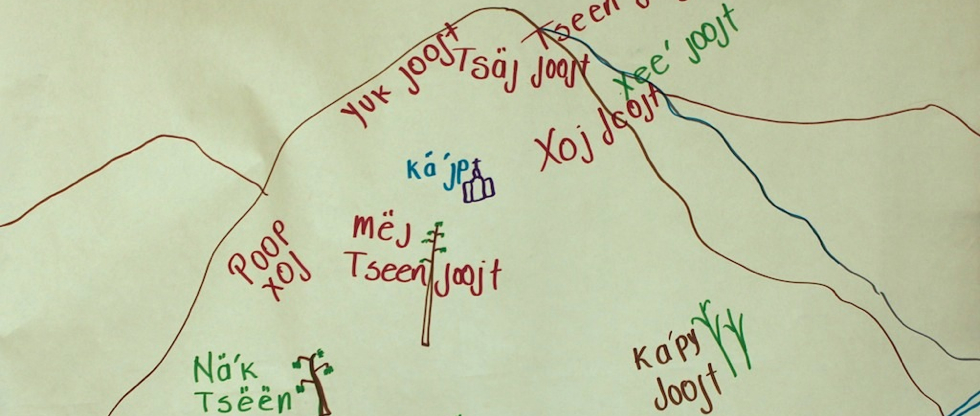 Tseen
Yuk joojt
Tsäj joojt
xee' joojt
Xoj joojt
ká'jp
mëj
Tseen joojt
Poop
xoj
Nä'k
Tsëën
ká'py
joojt